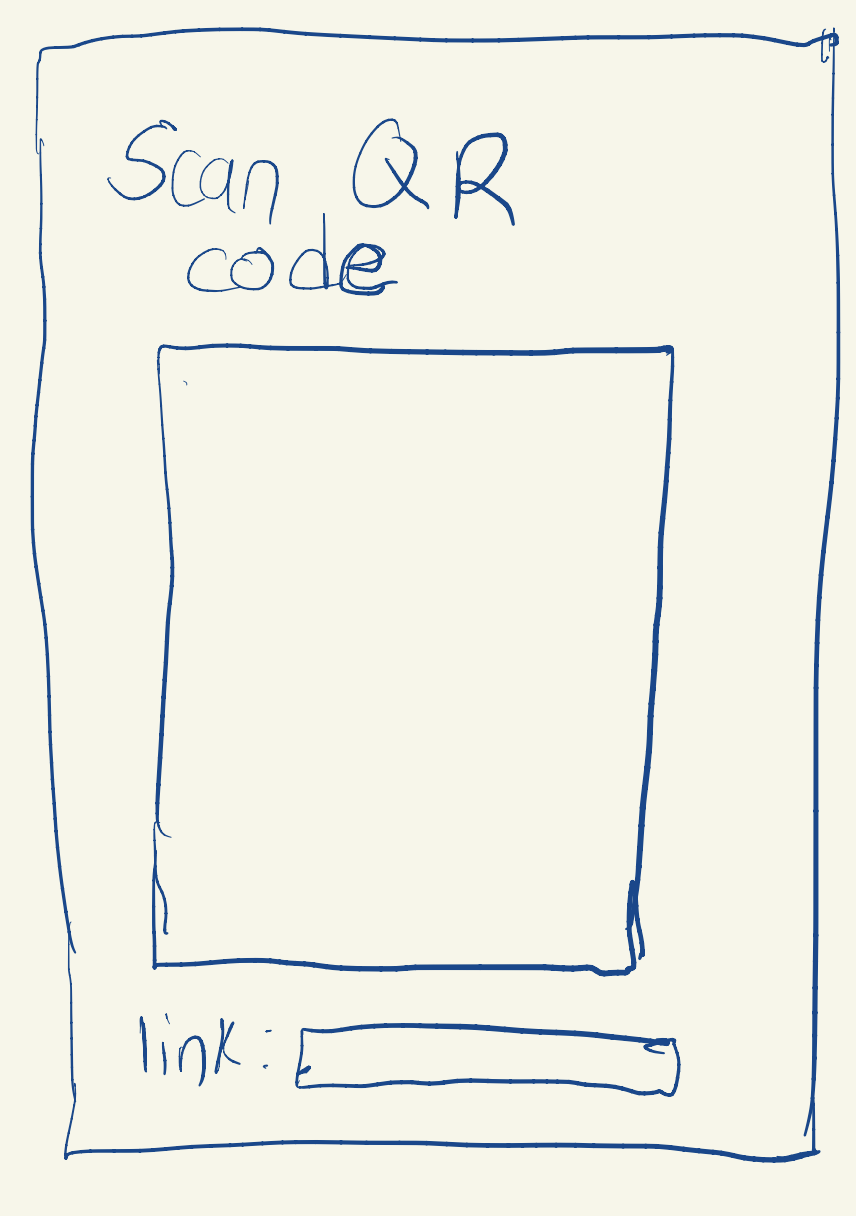 Scan QR
code
link: